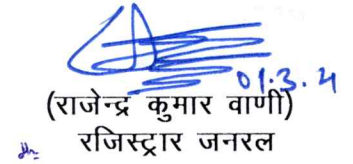 01.3.21
(राजेन्द्र कुमार वाणी)
रजिस्ट्रार जनरल